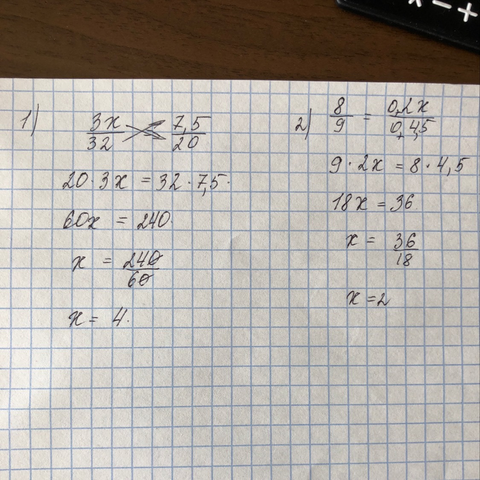 1) 3x/32 = 7,5/20
20·3x = 32·7,5·
60x = 240
x = 240/60
x = 4.
2) 8/9 = 0,2x/0,45
9·2x = 8·4,5
18x = 36
x = 36/18
x = 2